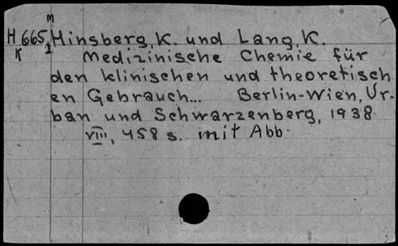 M
H 665, Hinsberg, K. und Lang, K.
K 1
Medizinische Chemie für
den klinischen und theoretisch
en Gebrauch... Berlin-Wien, Ur-
ban und Schwarzenberg, 1938
VIII, 458 s. mit Abb.